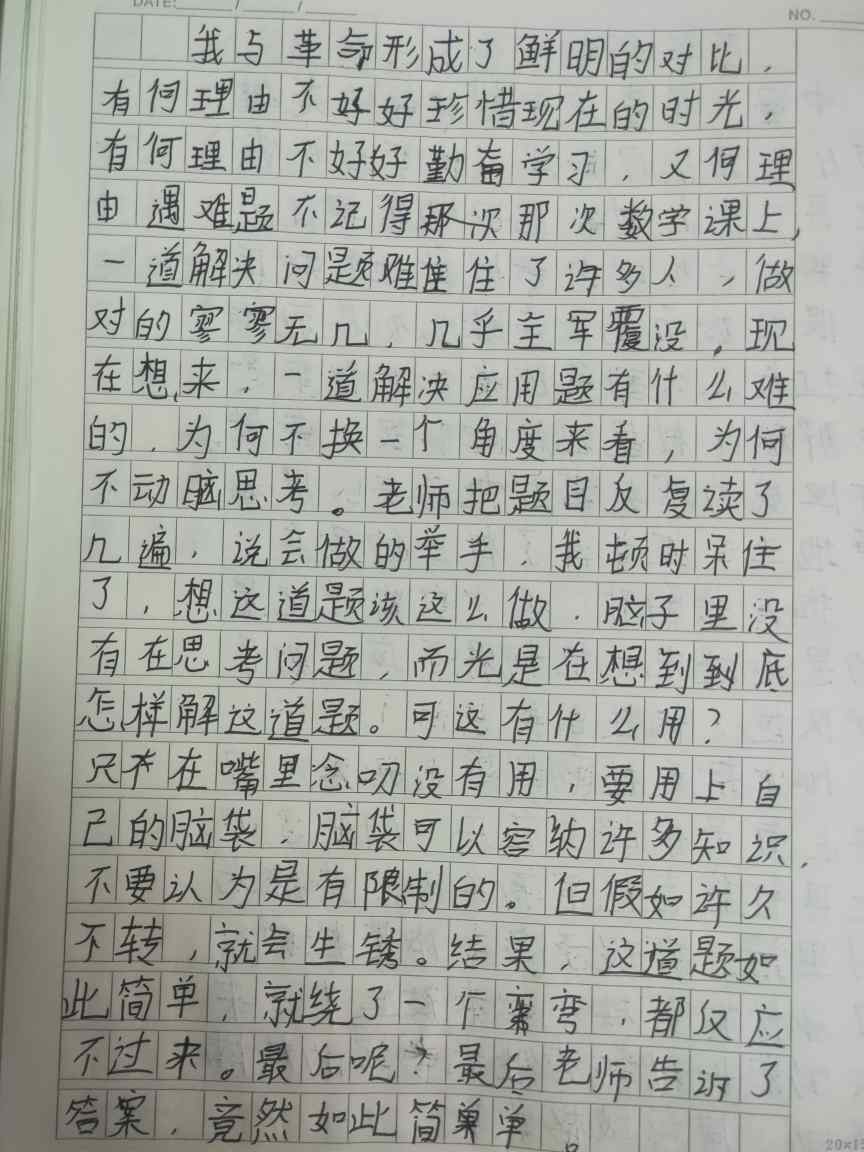 DATE: / /
NO.
我与革命形成了鲜明的对比，
有何理由不好好珍惜现在的时光，
有何理由不好好勤奋学习，又何理
由遇难题不记得那次那次数学课上，
一道解决问题难住住了许多人，做
对的寥寥无几，几乎全军覆没，现
在想来，一道解决应用题有什么难
的，为何不换一个角度来看，为何
不动脑思考。老师把题目反复读了
几遍，说会做的举手，我顿时呆住
了，想这道题该这么做，脑子里没
有在思考问题，而光是在想到到底
怎样解这道题。可这有什么用？
只在在嘴里念叨没有用，要用上自
己的脑袋，脑袋可以容纳许多知识，
不要认为是有限制的。但假如许久
不转，就会生锈。结果，这道题如
此简单，就绕了一个弯弯，都仅应
不过来。最后呢？最后老师告诉了
答案，竟然如此简单单。
20×15